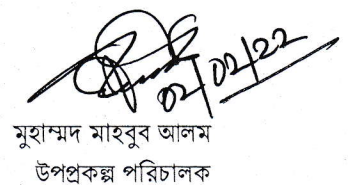 02/02/22
মুহাম্মদ মাহবুব আলম
উপপ্রকল্প পরিচালক